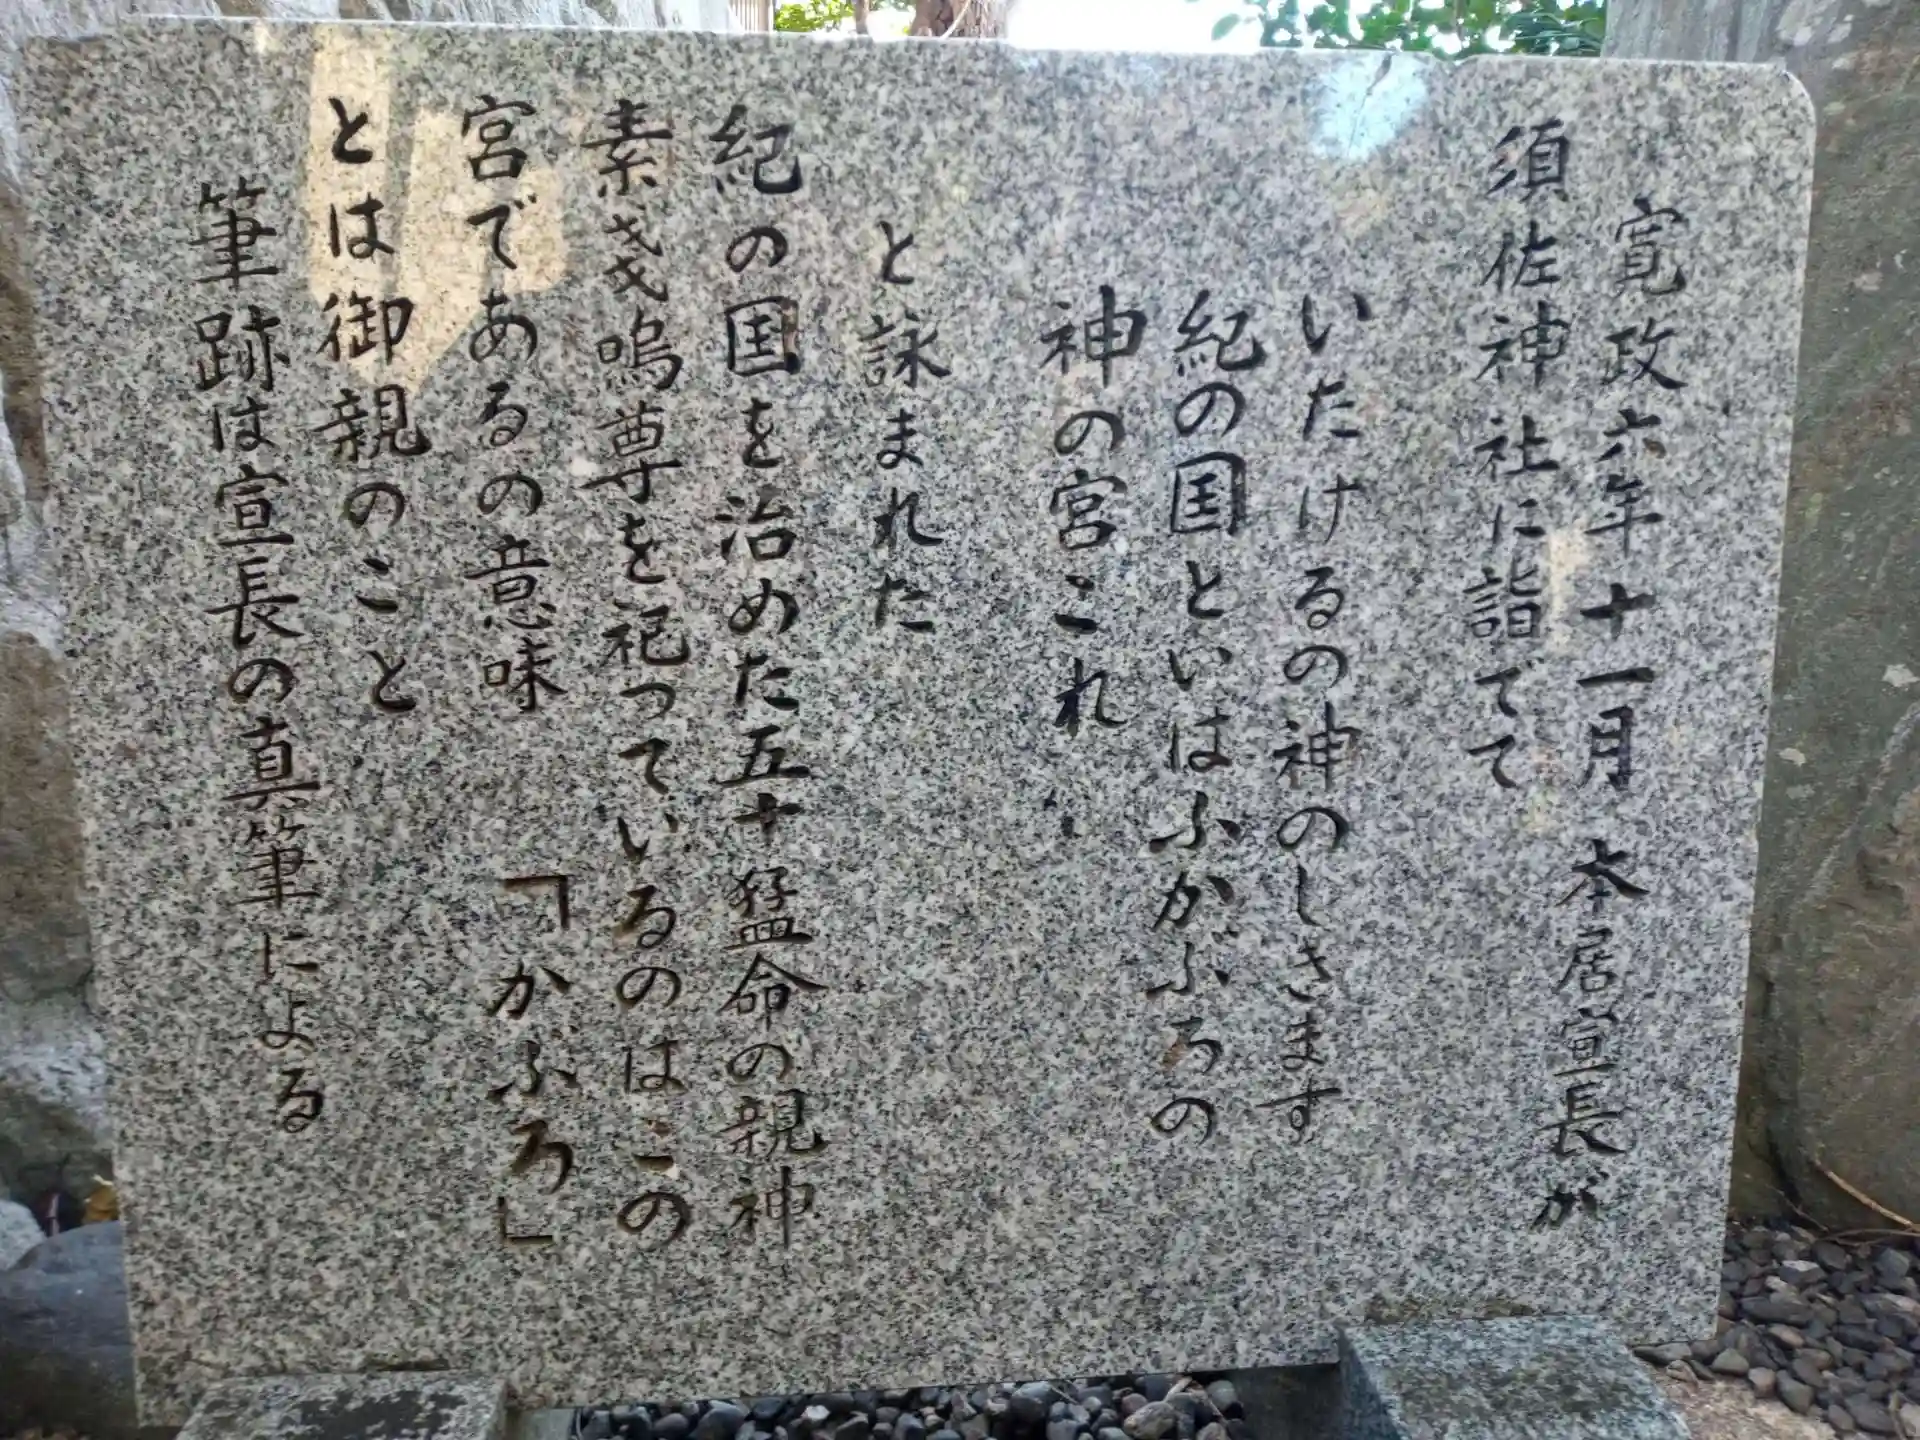 寛政六年十一月 本居宣長が
須佐神社に詣でて
いたけるの神のしきます
紀の国といはふかぶろの
神の宮これ
と詠まれた
紀の国を治めた五十猛命の親神
素戔嗚尊を祀っているのはこの
宮であるの意味 「かふろ」
とは御親のこと
筆跡は宣長の真筆による